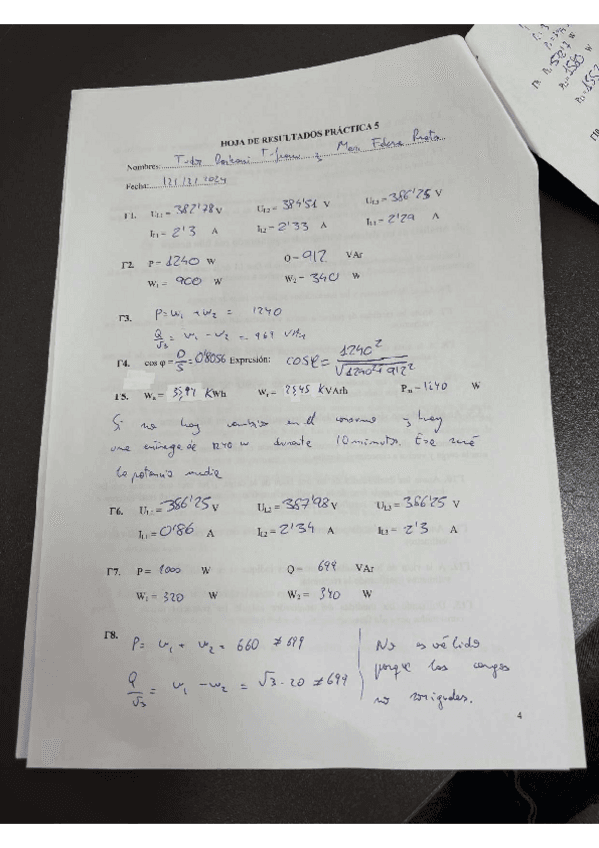 HOJA DE RESULTADOS PRÁCTICA 5
Nombres:
Fecha: 12/3/2024
Γ1. UL1 = 382'78 V UL2 = 384'51 V UL3 = 386'25 V
IL1 = 2'3 A IL2 = 2'33 A IL3 = 2'29 A
Γ2. P = 1240 W Q = 912 VAr
W1 = 900 W W2 = 340 W
Γ3. P = W1 + W2 = 1240
Q/√3 = W1 - W2 = 969 VAr
Γ4. cos φ = P/S = 0'8056 Expresión: cosφ = 1240²/√1240²+912²
Γ5. Wa = KWh Wr = KVArh Pm = W
Si no hay cambio en el consumo y hay
una entrega de 1240 W durante 10 minutos. Esa será
la potencia media
Γ6. UL1 = 386'25 V UL2 = 387'98 V UL3 = 386'25 V
IL1 = 0'86 A IL2 = 2'34 A IL3 = 2'3 A
Γ7. P = 1000 W Q = 699 VAr
W1 = 320 W W2 = 340 W
Γ8. P = W1 + W2 = 660 ≠ 699
Q/√3 = W1 - W2 = √3 · 20 ≠ 699
No es válido
porque las cargas
no
4